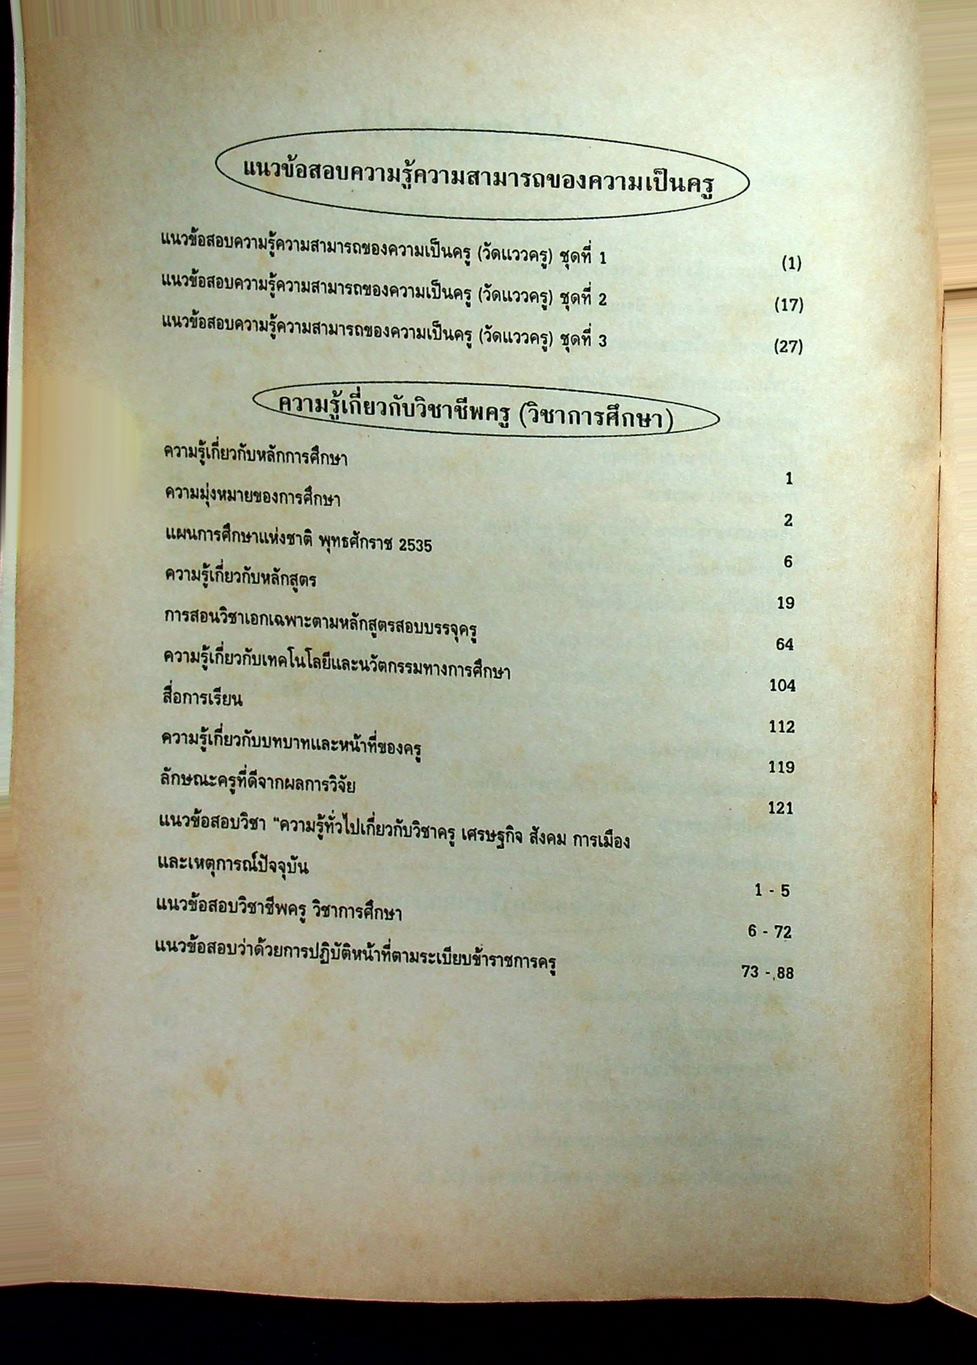 แนวข้อสอบความรู้ความสามารถของความเป็นครู
แนวข้อสอบความรู้ความสามารถของความเป็นครู (วัดแววครู) ชุดที่ 1 (1)
แนวข้อสอบความรู้ความสามารถของความเป็นครู (วัดแววครู) ชุดที่ 2 (17)
แนวข้อสอบความรู้ความสามารถของความเป็นครู (วัดแววครู) ชุดที่ 3 (27)
ความรู้เกี่ยวกับวิชาชีพครู (วิชาการศึกษา)
ความรู้เกี่ยวกับหลักการศึกษา 1
ความมุ่งหมายของการศึกษา 2
แผนการศึกษาแห่งชาติ พุทธศักราช 2535 6
ความรู้เกี่ยวกับหลักสูตร 19
การสอนวิชาเอกเฉพาะตามหลักสูตรสอบบรรจุครู 64
ความรู้เกี่ยวกับเทคโนโลยีและนวัตกรรมทางการศึกษา 104
สื่อการเรียน 112
ความรู้เกี่ยวกับบทบาทและหน้าที่ของครู 119
ลักษณะครูที่ดีจากผลการวิจัย 121
แนวข้อสอบวิชา "ความรู้ทั่วไปเกี่ยวกับวิชาครู เศรษฐกิจ สังคม การเมือง
และเหตุการณ์ปัจจุบัน 1 - 5
แนวข้อสอบวิชาชีพครู วิชาการศึกษา 6 - 72
แนวข้อสอบว่าด้วยการปฏิบัติหน้าที่ตามระเบียบข้าราชการครู 73 - 88